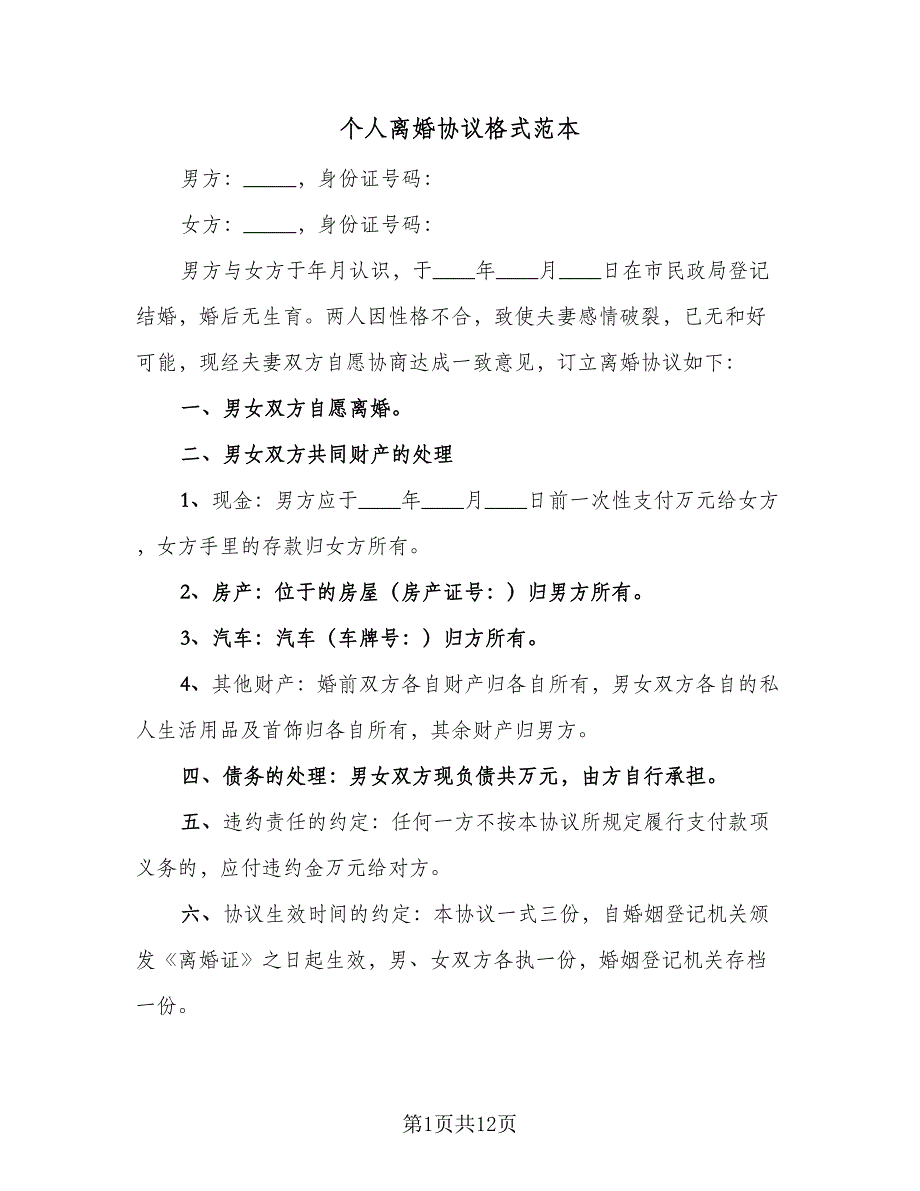 个人离婚协议格式范本
男方：_____，身份证号码：
女方：_____，身份证号码：
男方与女方于年月认识，于____年____月____日在市民政局登记
结婚，婚后无生育。两人因性格不合，致使夫妻感情破裂，已无和好
可能，现经夫妻双方自愿协商达成一致意见，订立离婚协议如下：
一、男女双方自愿离婚。
二、男女双方共同财产的处理
1、现金：男方应于____年____月____日前一次性支付万元给女方
，女方手里的存款归女方所有。
2、房产：位于的房屋（房产证号：）归男方所有。
3、汽车：汽车（车牌号：）归方所有。
4、其他财产：婚前双方各自财产归各自所有，男女双方各自的私
人生活用品及首饰归各自所有，其余财产归男方。
四、债务的处理：男女双方现负债共万元，由方自行承担。
五、违约责任的约定：任何一方不按本协议所规定履行支付款项
义务的，应付违约金万元给对方。
六、协议生效时间的约定：本协议一式三份，自婚姻登记机关颁
发《离婚证》之日起生效，男、女双方各执一份，婚姻登记机关存档
一份。
第1页共12页